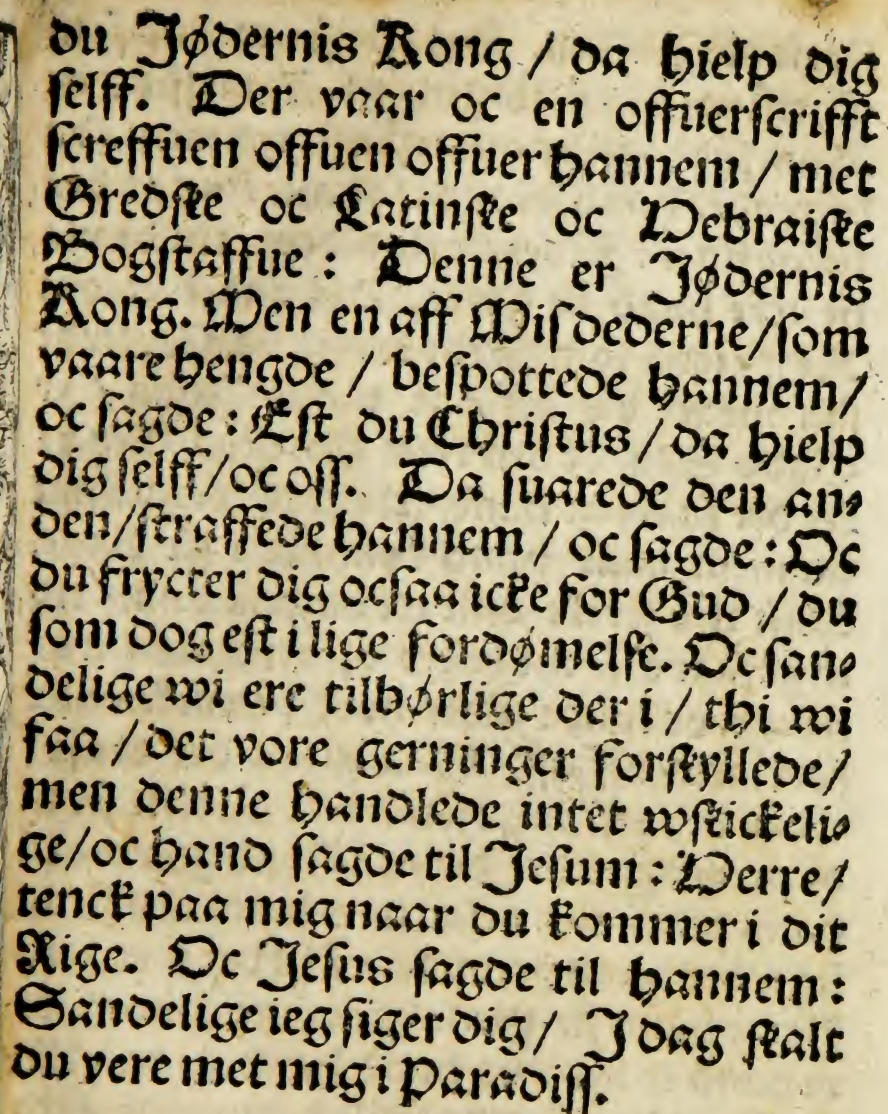 du Jødernis Kong / da hielp dig
selff. Der vaar oc en offuerscrifft
screffuen offuen offuer hannem / met
Gredske oc Latinske oc Hebraiske
Bogstaffue : Denne er Jødernis
Kong. Men en aff Misdederne/som
vaare hengde / bespottede hannem/
oc sagde : Est du Christus / da hielp
dig selff/oc oss. Da suarede den an⸗
den/straffede hannem / oc sagde : Oc
du frycter dig ocsaa icke for Gud / du
som dog est i lige fordømelse. Oc san⸗
delige wi ere tilbørlige der i / thi wi
faa / det vore gerninger forskyllede/
men denne handlede intet wskickeli⸗
ge/oc hand sagde til Jesum : Herre/
tenck paa mig naar du kommer i dit
Rige. Oc Jesus sagde til hannem :
Sandelige ieg siger dig / J dag skalt
du vere met mig i Paradiss.